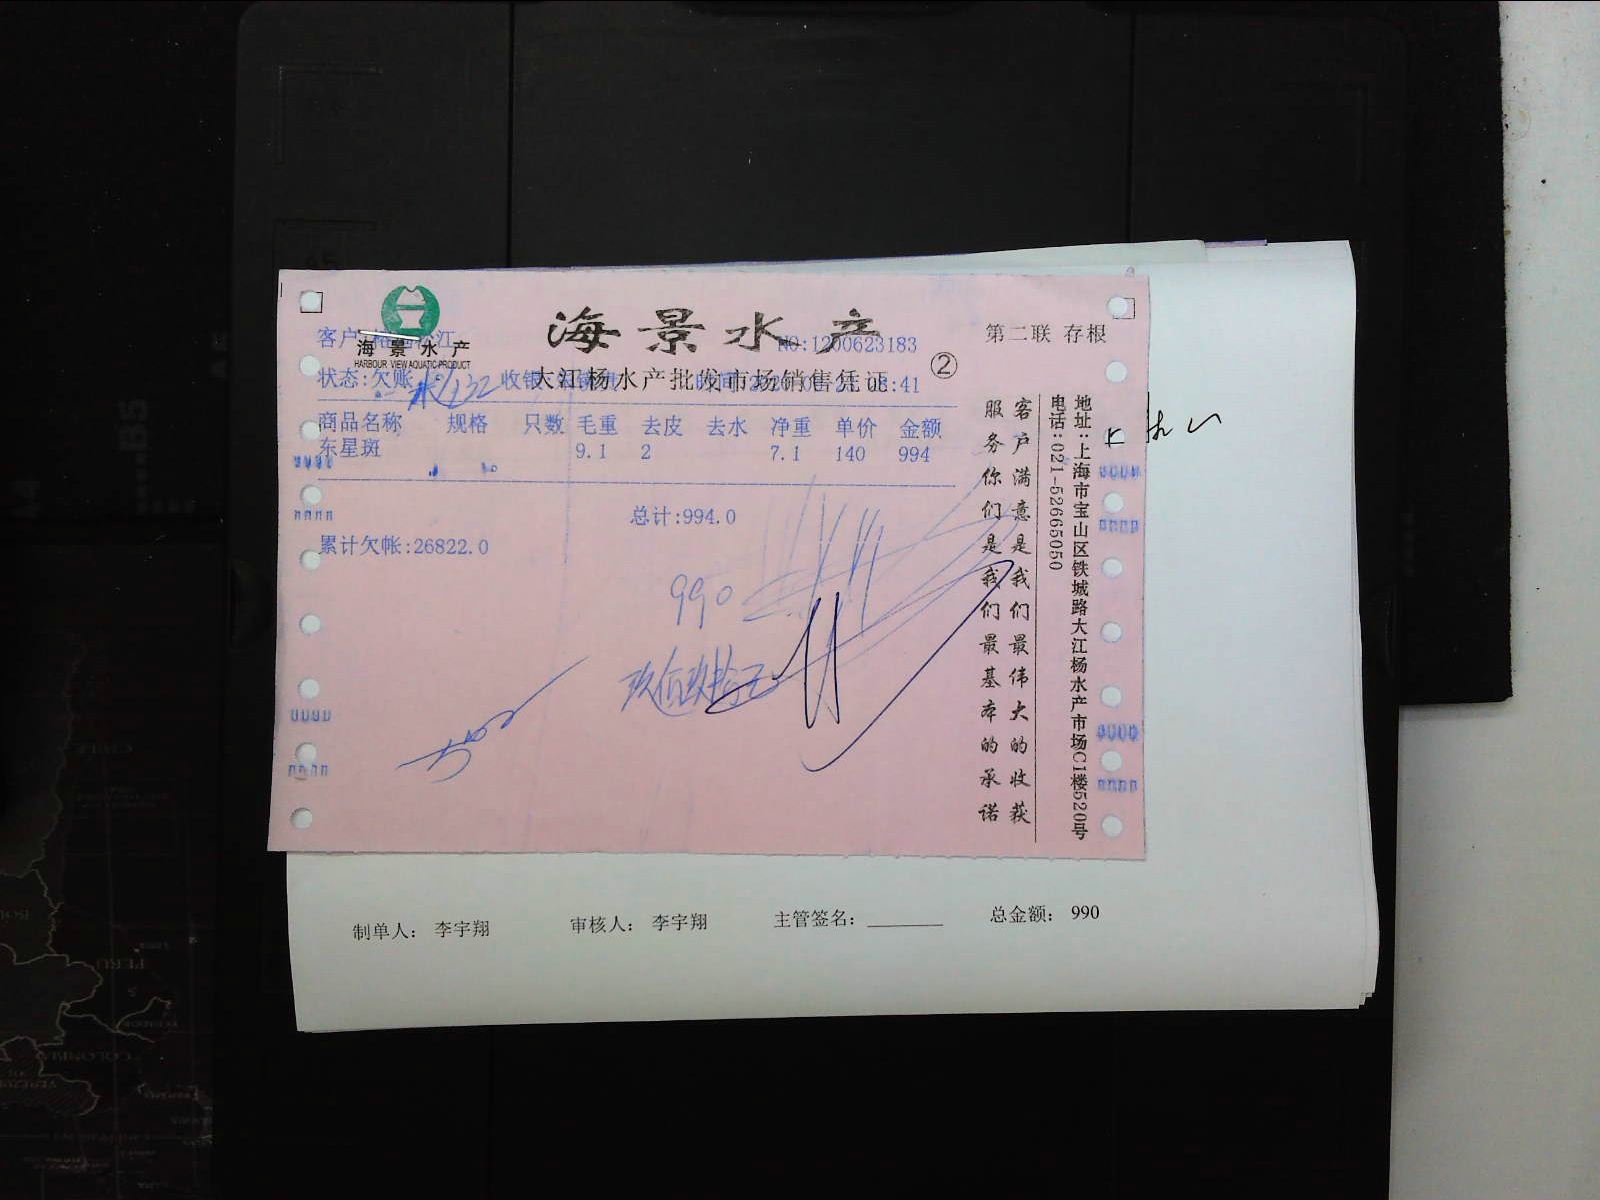 海景水产
HARBOUR VIEW AQUATIC PRODUCT
海景水产
第二联 存根
NO:1200623183
大江杨水产批发市场销售凭证 ②
客户
状态:欠账 收银
商品名称 规格 只数 毛重 去皮 去水 净重 单价 金额
东星斑 9.1 2 7.1 140 994
总计:994.0
累计欠帐:26822.0
990
玖佰玖拾元
客户满意是我们最伟大的收获
服务你们是我们最基本的承诺
地址:上海市宝山区铁城路大江杨水产市场C1楼520号
电话:021-52665050
制单人: 李宇翔 审核人: 李宇翔 主管签名: 总金额: 990